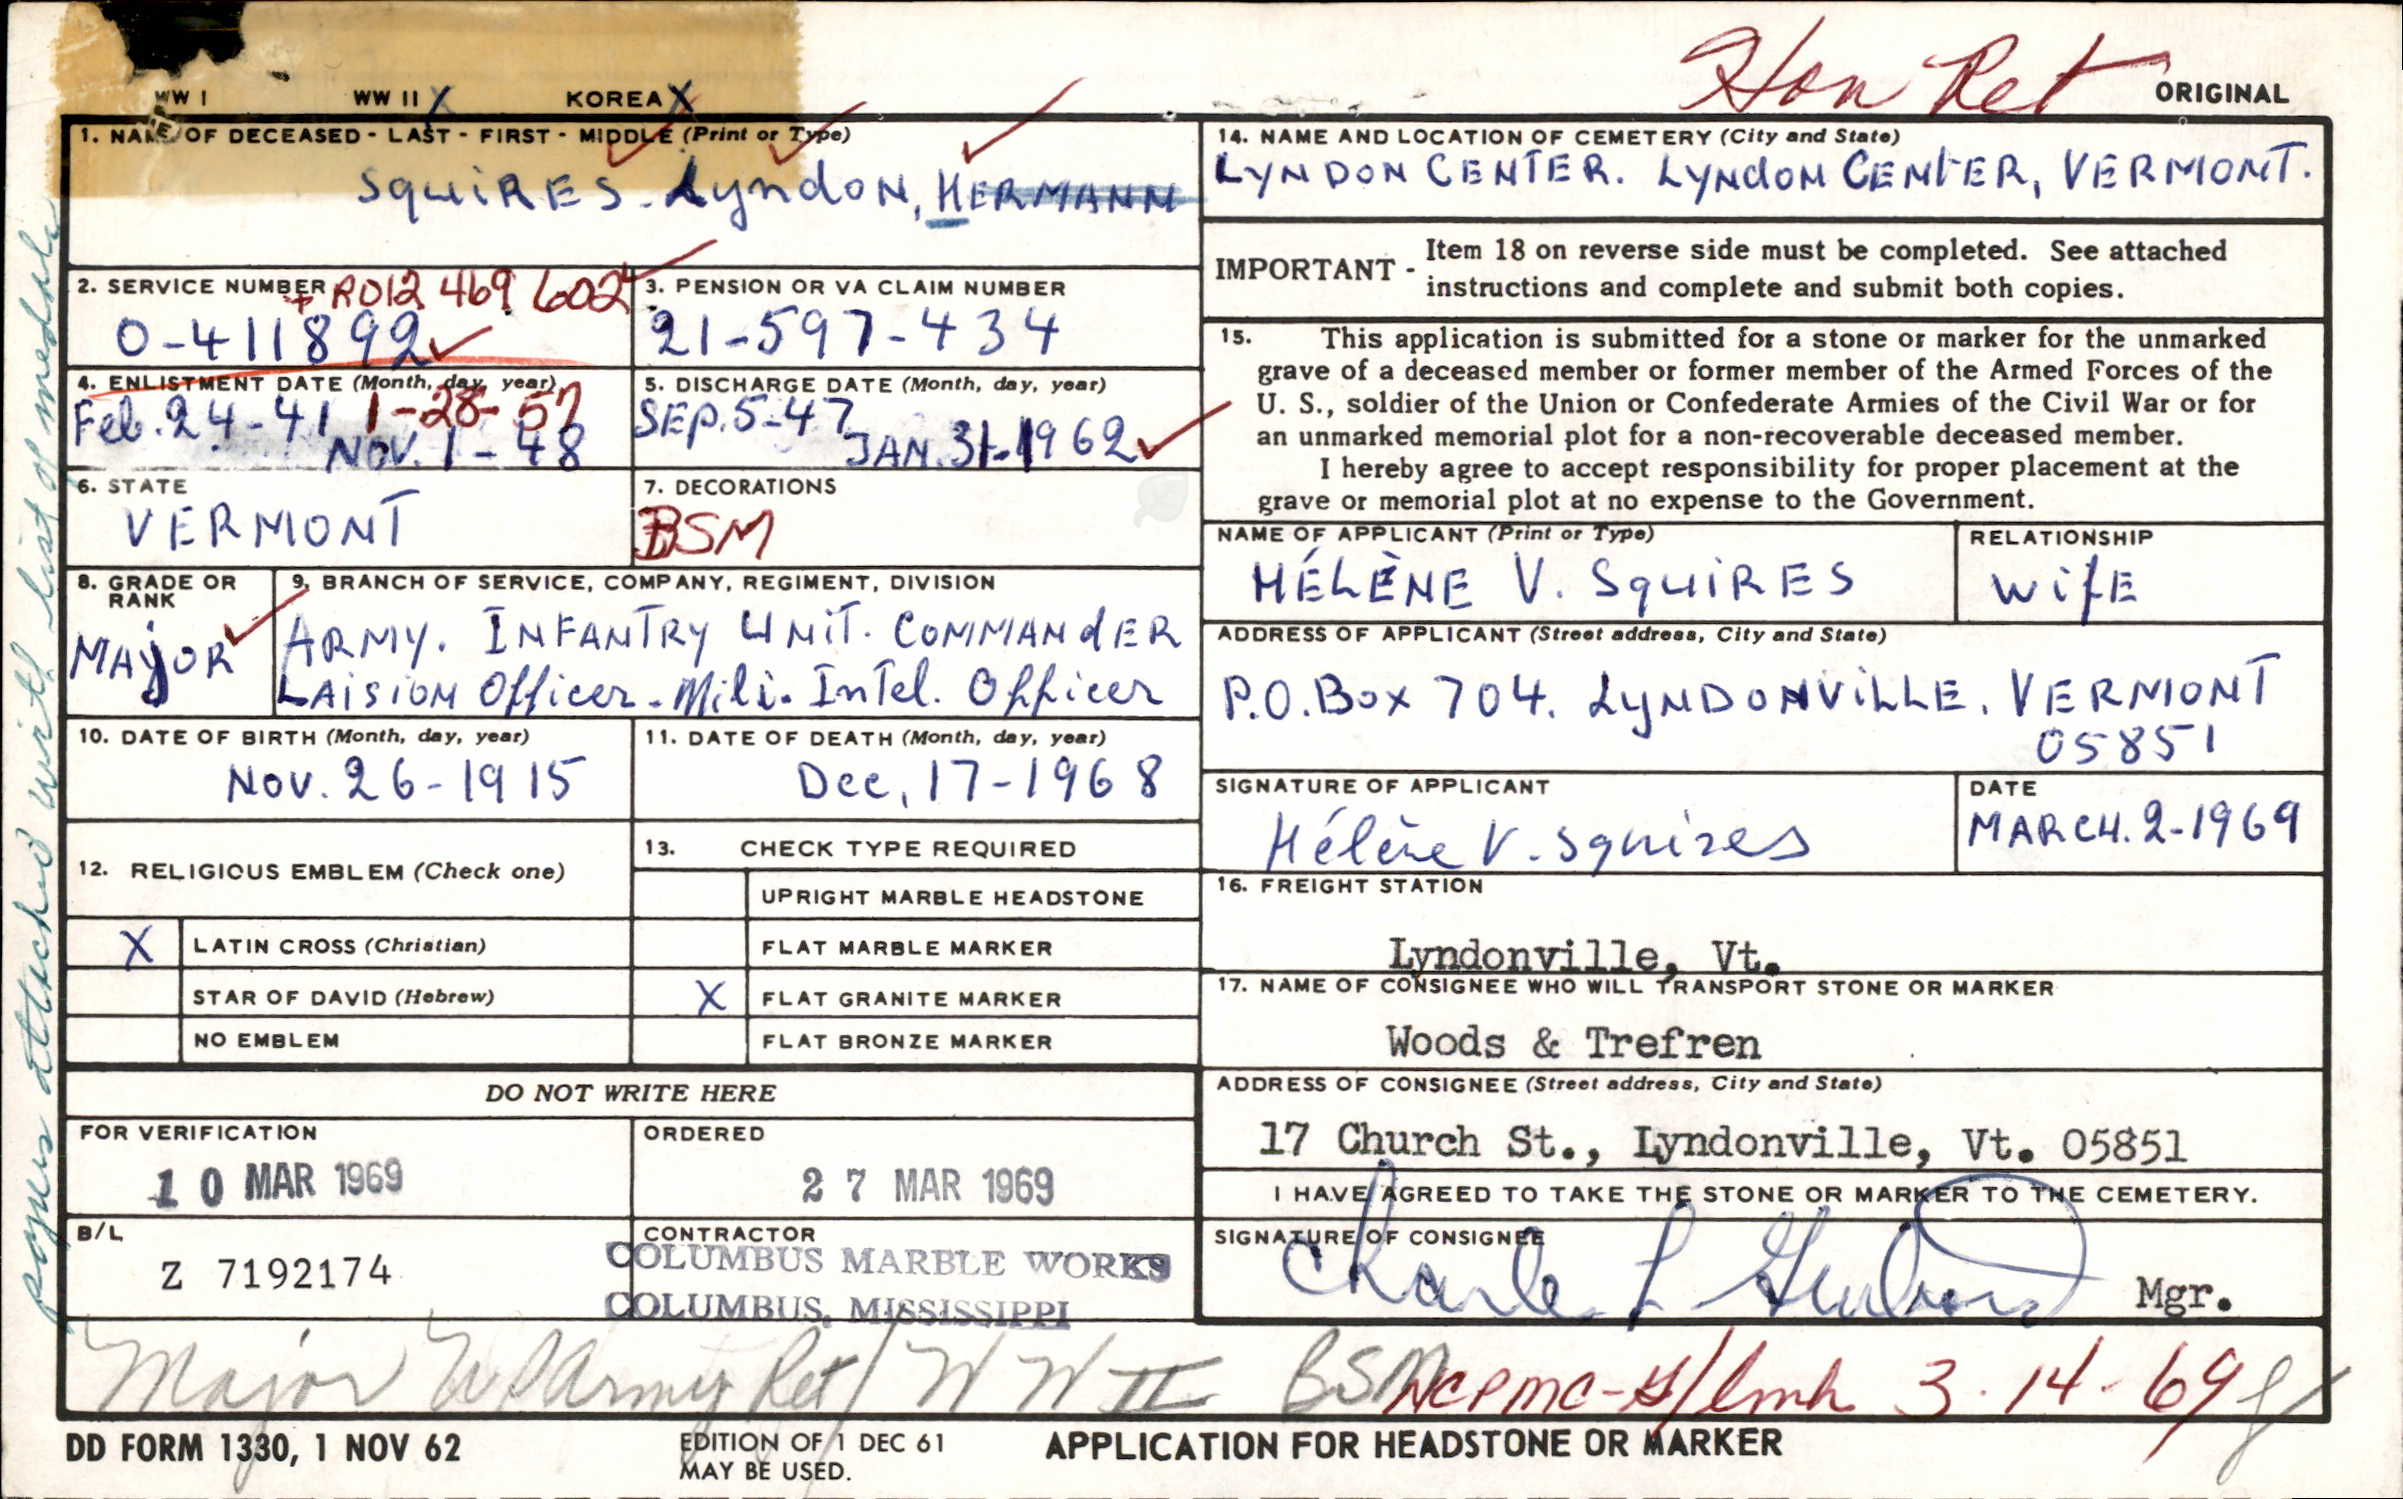 Hon Ret
ORIGINAL
WW I WW II X KOREA X
1. NAME OF DECEASED - LAST - FIRST - MIDDLE (Print or Type)
SquiRES - Lyndon, HERMANN
2. SERVICE NUMBER + RO12 469 602
O-411892
3. PENSION OR VA CLAIM NUMBER
21-597-434
4. ENLISTMENT DATE (Month, day, year)
Feb. 24-41 1-28-57
NOV. 1-48
5. DISCHARGE DATE (Month, day, year)
SEP. 5-47
JAN. 31-1962
6. STATE
VERMONT
7. DECORATIONS
BSM
8. GRADE OR RANK
MAjOR
9. BRANCH OF SERVICE, COMPANY, REGIMENT, DIVISION
ARMY. INFANTRY UNiT. COMMANdER
LAISION Officer - Mili. Intel. Officer
10. DATE OF BIRTH (Month, day, year)
Nov. 26-1915
11. DATE OF DEATH (Month, day, year)
Dec, 17-1968
12. RELIGIOUS EMBLEM (Check one)
X LATIN CROSS (Christian)
STAR OF DAVID (Hebrew)
NO EMBLEM
13. CHECK TYPE REQUIRED
UPRIGHT MARBLE HEADSTONE
FLAT MARBLE MARKER
X FLAT GRANITE MARKER
FLAT BRONZE MARKER
DO NOT WRITE HERE
FOR VERIFICATION
10 MAR 1969
ORDERED
27 MAR 1969
B/L
Z 7192174
CONTRACTOR
COLUMBUS MARBLE WORKS
COLUMBUS, MISSISSIPPI
14. NAME AND LOCATION OF CEMETERY (City and State)
LYNDON CENTER. LYNdON CENtER, VERMONT.
IMPORTANT - Item 18 on reverse side must be completed. See attached
instructions and complete and submit both copies.
15. This application is submitted for a stone or marker for the unmarked
grave of a deceased member or former member of the Armed Forces of the
U. S., soldier of the Union or Confederate Armies of the Civil War or for
an unmarked memorial plot for a non-recoverable deceased member.
I hereby agree to accept responsibility for proper placement at the
grave or memorial plot at no expense to the Government.
NAME OF APPLICANT (Print or Type)
HÉLÈNE V. SquiRES
RELATIONSHIP
wifE
ADDRESS OF APPLICANT (Street address, City and State)
P.O. Box 704. LyNDONViLLE, VERMONT
05851
SIGNATURE OF APPLICANT
Hélène V. Squires
DATE
MARCH. 2-1969
16. FREIGHT STATION
Lyndonville, Vt.
17. NAME OF CONSIGNEE WHO WILL TRANSPORT STONE OR MARKER
Woods & Trefren
ADDRESS OF CONSIGNEE (Street address, City and State)
17 Church St., Lyndonville, Vt. 05851
I HAVE AGREED TO TAKE THE STONE OR MARKER TO THE CEMETERY.
SIGNATURE OF CONSIGNEE
Mgr.
Major US Army Ret/ WW II BSM
3-14-69
DD FORM 1330, 1 NOV 62
EDITION OF 1 DEC 61
MAY BE USED.
APPLICATION FOR HEADSTONE OR MARKER
papers attached with list of medals